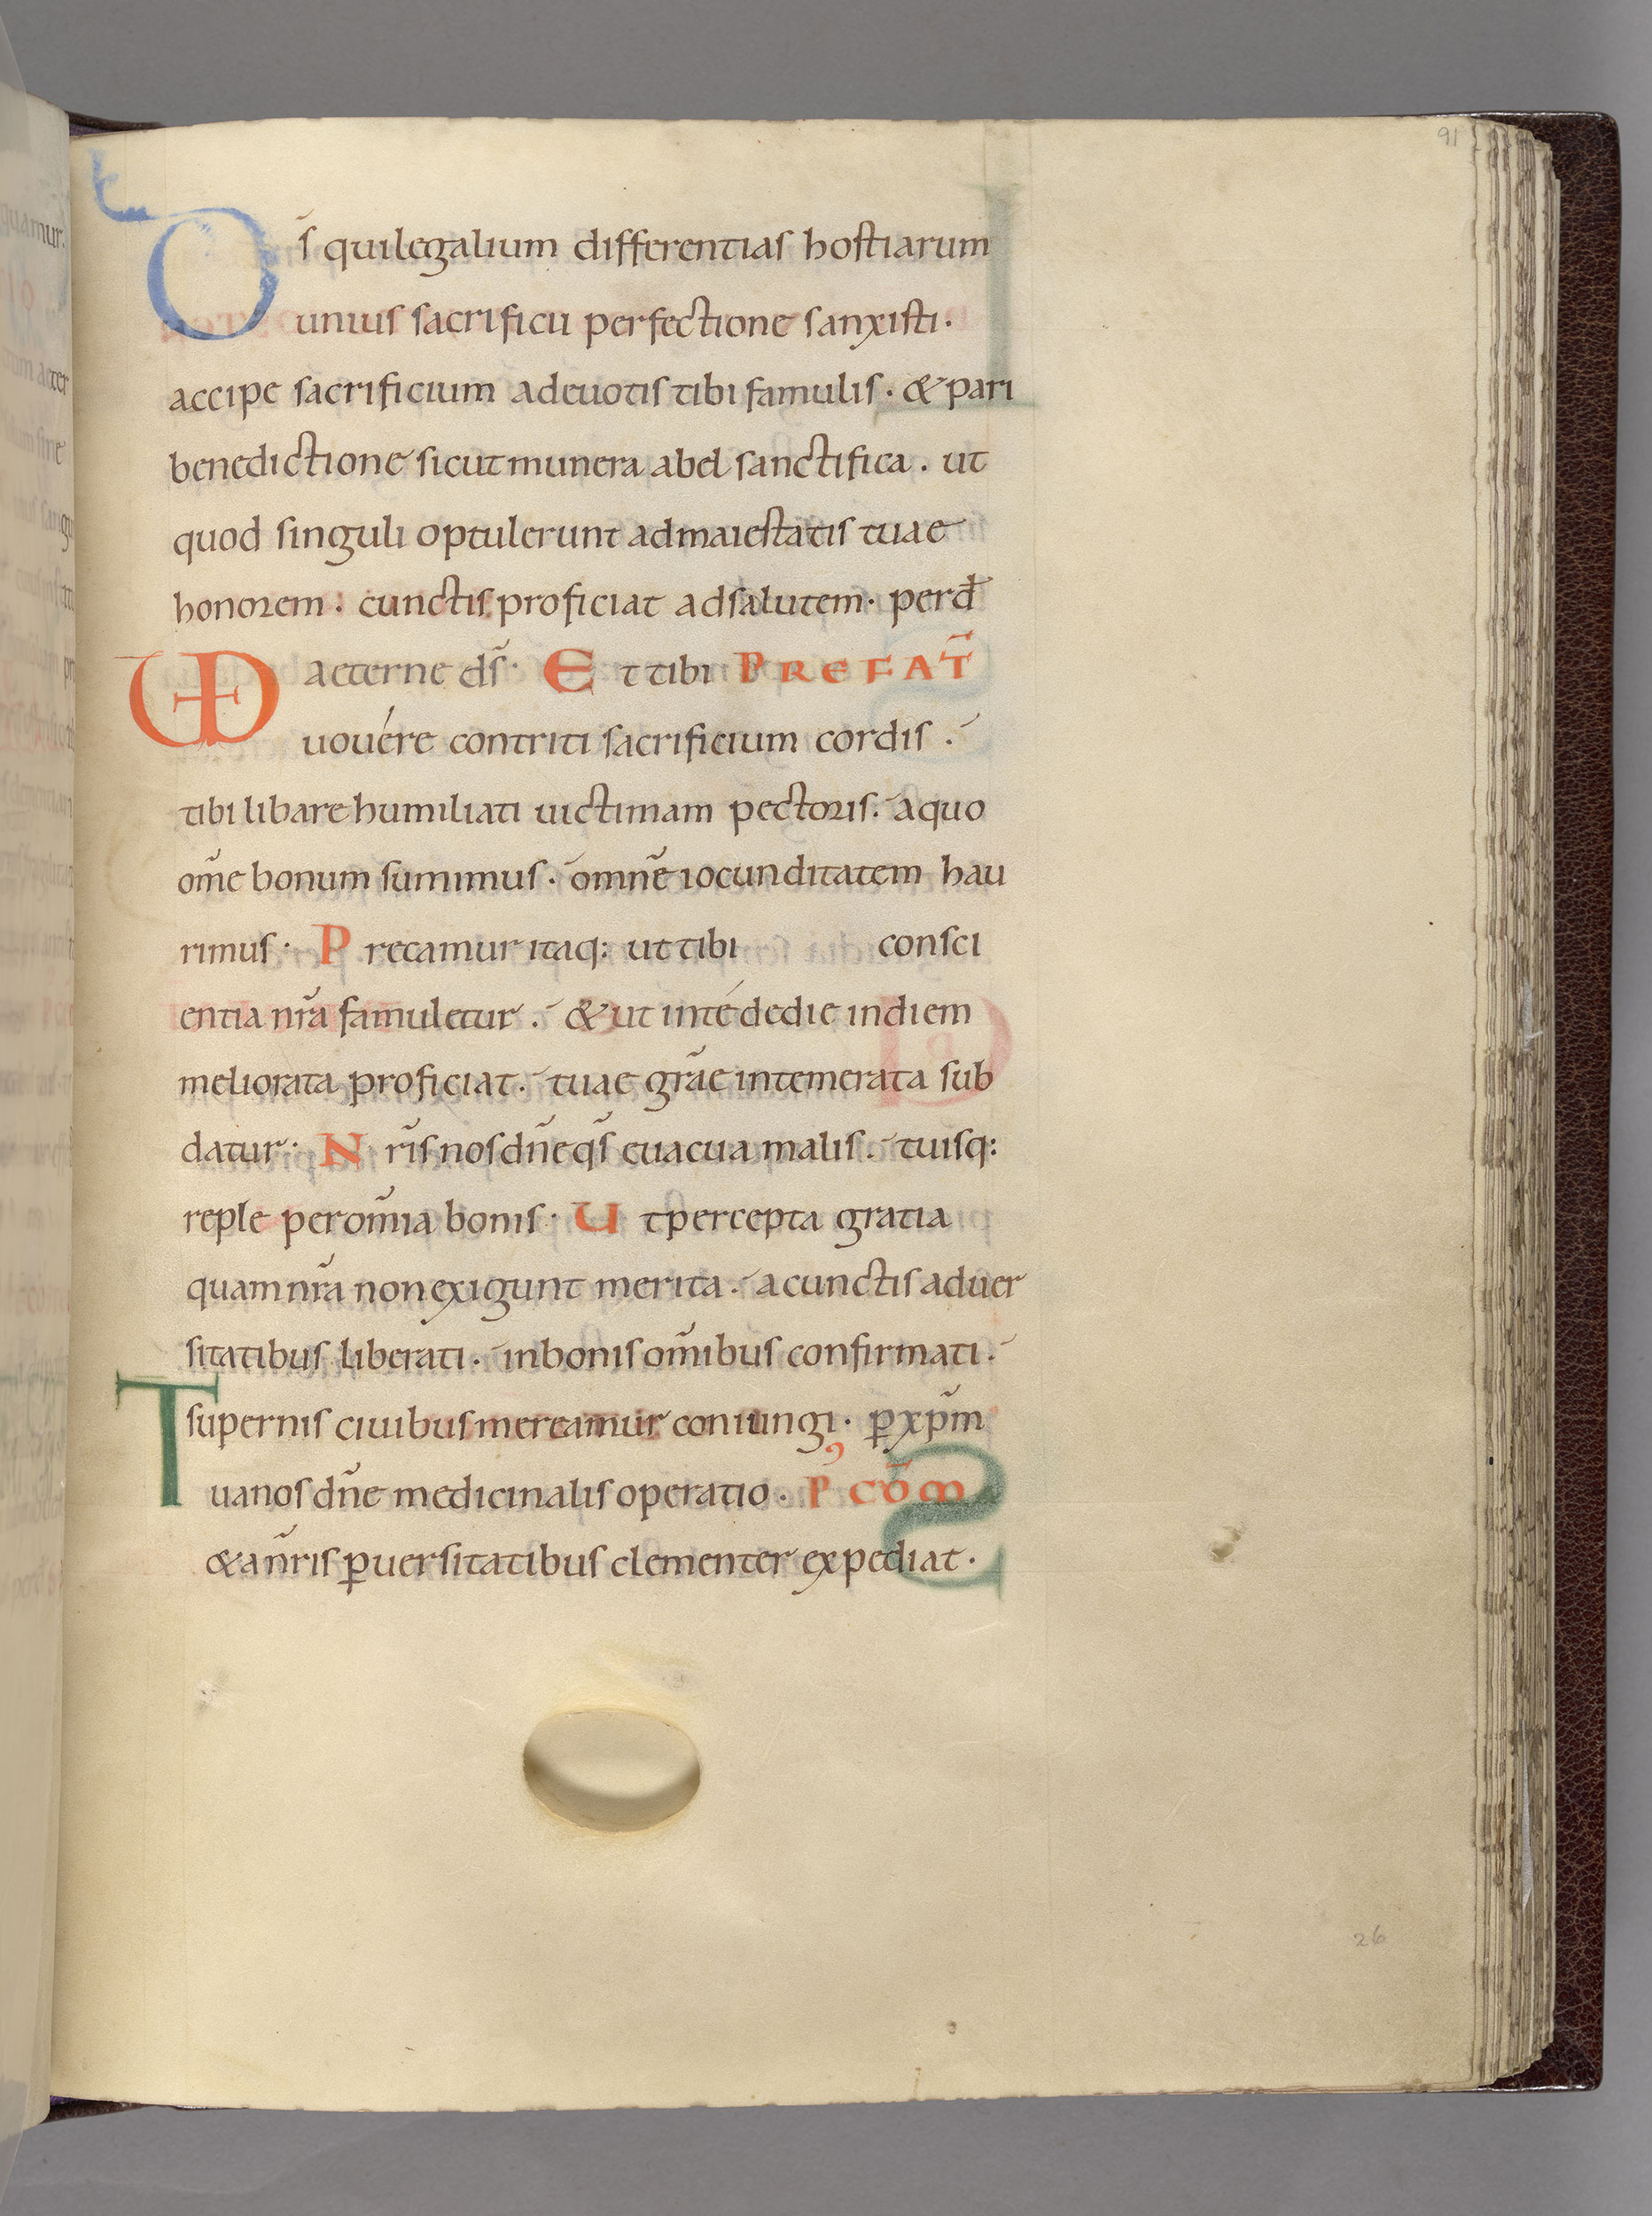 91
Os̄ qui legalium differentias hostiarum
unius sacrificii perfectione sanxisti·
accipe sacrificium a deuotis tibi famulis· & pari
benedictione sicut munera abel sanctifica. ut
quod singuli optulerunt ad maiestatis tuae
honorem· cunctis proficiat ad salutem· per dm̄
UD aeterne ds̄· Et tibi PREFAT̄
uouére contriti sacrificium cordis.
tibi libare humiliati uictimam pectoris. a quo
om̄e bonum sumimus. omnē iocunditatem hau
rimus· Precamur itaq: ut tibi consci
entia nr̄a famuletur. & ut in té de die in diem
meliorata proficiat. tuae grāe intemerata sub
datur· Nr̄is nos dn̄e qs̄ euacua malis. tuisq:
reple per om̄ia bonis· Ut percepta gratia
quam nr̄a non exigunt merita. a cunctis aduer
sitatibus liberati. in bonis om̄ibus confirmati.
supernis ciuibus mereamur coniungi· ꝑ xp̄m
Tua nos dn̄e medicinalis operatio· P᾿ CŌM
& a nr̄is ꝑuersitatibus clementer expediat·
26